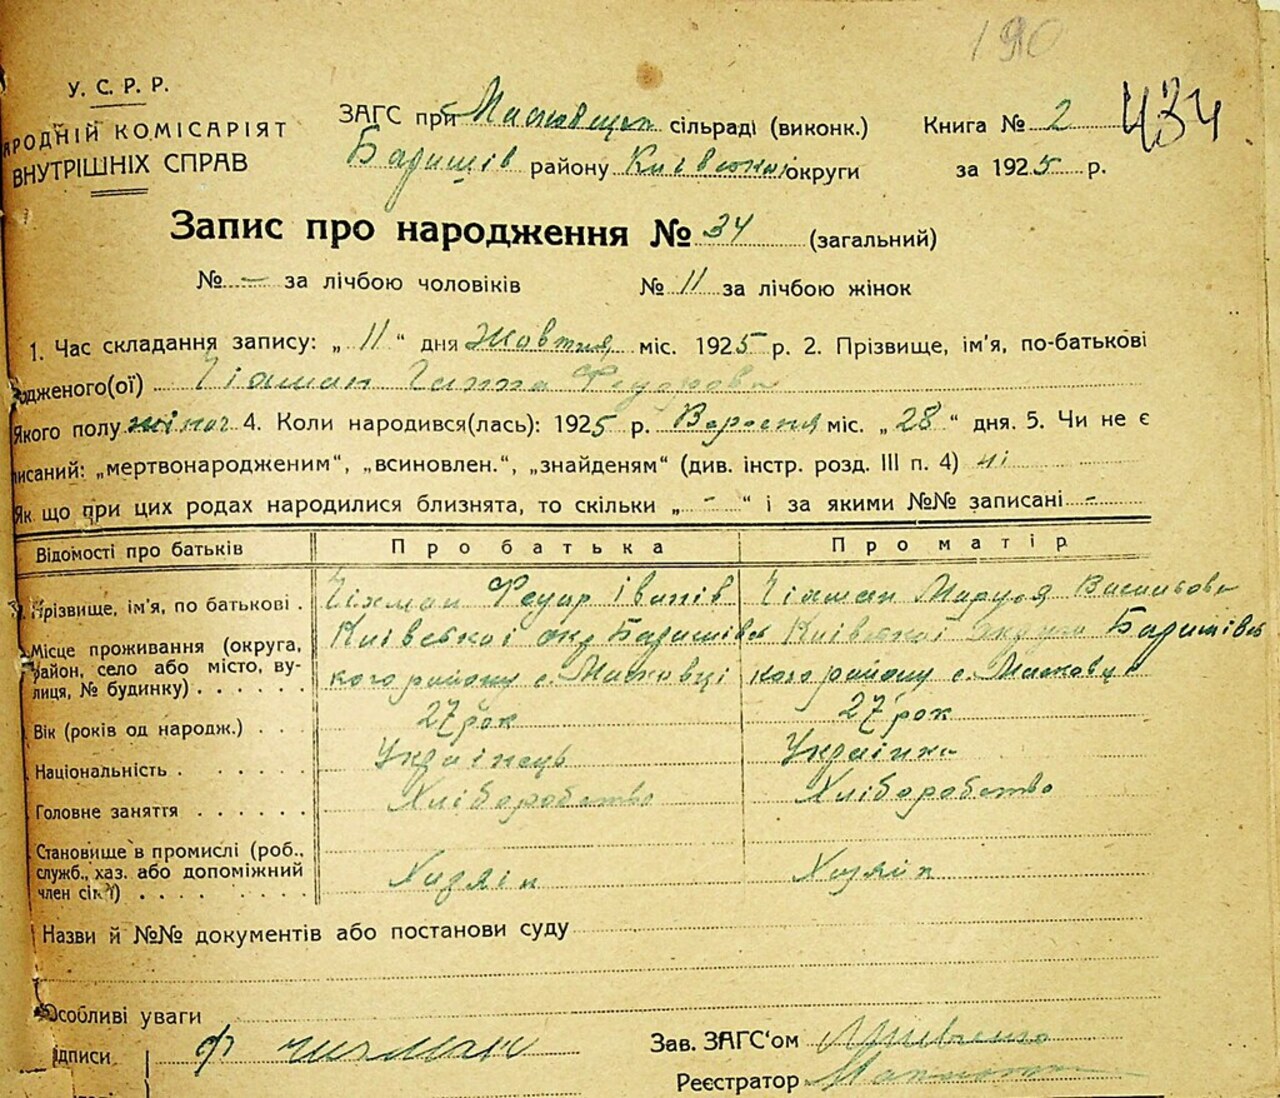 190
У. С. Р. Р.
АРОДНІЙ КОМІСАРІЯТ
ВНУТРІШНІХ СПРАВ
ЗАГС при сільраді (виконк.) Книга № 2 434
Баришів району Київської округи за 1925 р.
Запис про народження № 34 (загальний)
№ - за лічбою чоловіків № 11 за лічбою жінок
1. Час складання запису: „ 11 “ дня Жовтня міс. 1925 р. 2. Прізвище, ім'я, по-батькові
одженого(ої) Ганна Федорова
Якого полу жіноч 4. Коли народився(лась): 1925 р. Вересня міс. „ 28 “ дня. 5. Чи не є
писаний: „мертвонародженим“, „всиновлен.“, „знайденям“ (див. інстр. розд. III п. 4) ні
Як що при цих родах народилися близнята, то скільки „ - “ і за якими №№ записані -
Відомості про батьків Про батька Про матір
Прізвище, ім'я, по батькові . Чіхман Федір Іванів Маруся Васильова
Місце проживання (округа, район, село або місто, вулиця, № будинку) . . . . . . Київської окр Баришівського району с. Масківці Київської округи Баришівського району с. Масківці
Вік (років од народж.) . . . 27 рок 27 рок
Національність . . . . . . Українець Українка
Головне заняття . . . . . . Хліборобство Хліборобство
Становище в промислі (роб., служб., хаз. або допоміжний член сім'ї) . . . . . . Хазяїн Хазяїн
Назви й №№ документів або постанови суду
Особливі уваги
ідписи Зав. ЗАГС'ом
Реєстратор